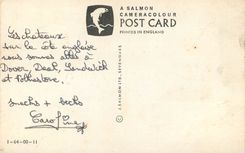 Les chateaux
sur la côte anglaise
nous sommes allés à
Dover, Deal, Sandwich
et Folkestone.
smacks + secks
Caroline
1-64-00-11
A SALMON
CAMERACOLOUR
POST CARD
PRINTED IN ENGLAND
J. SALMON LTD., SEVENOAKS